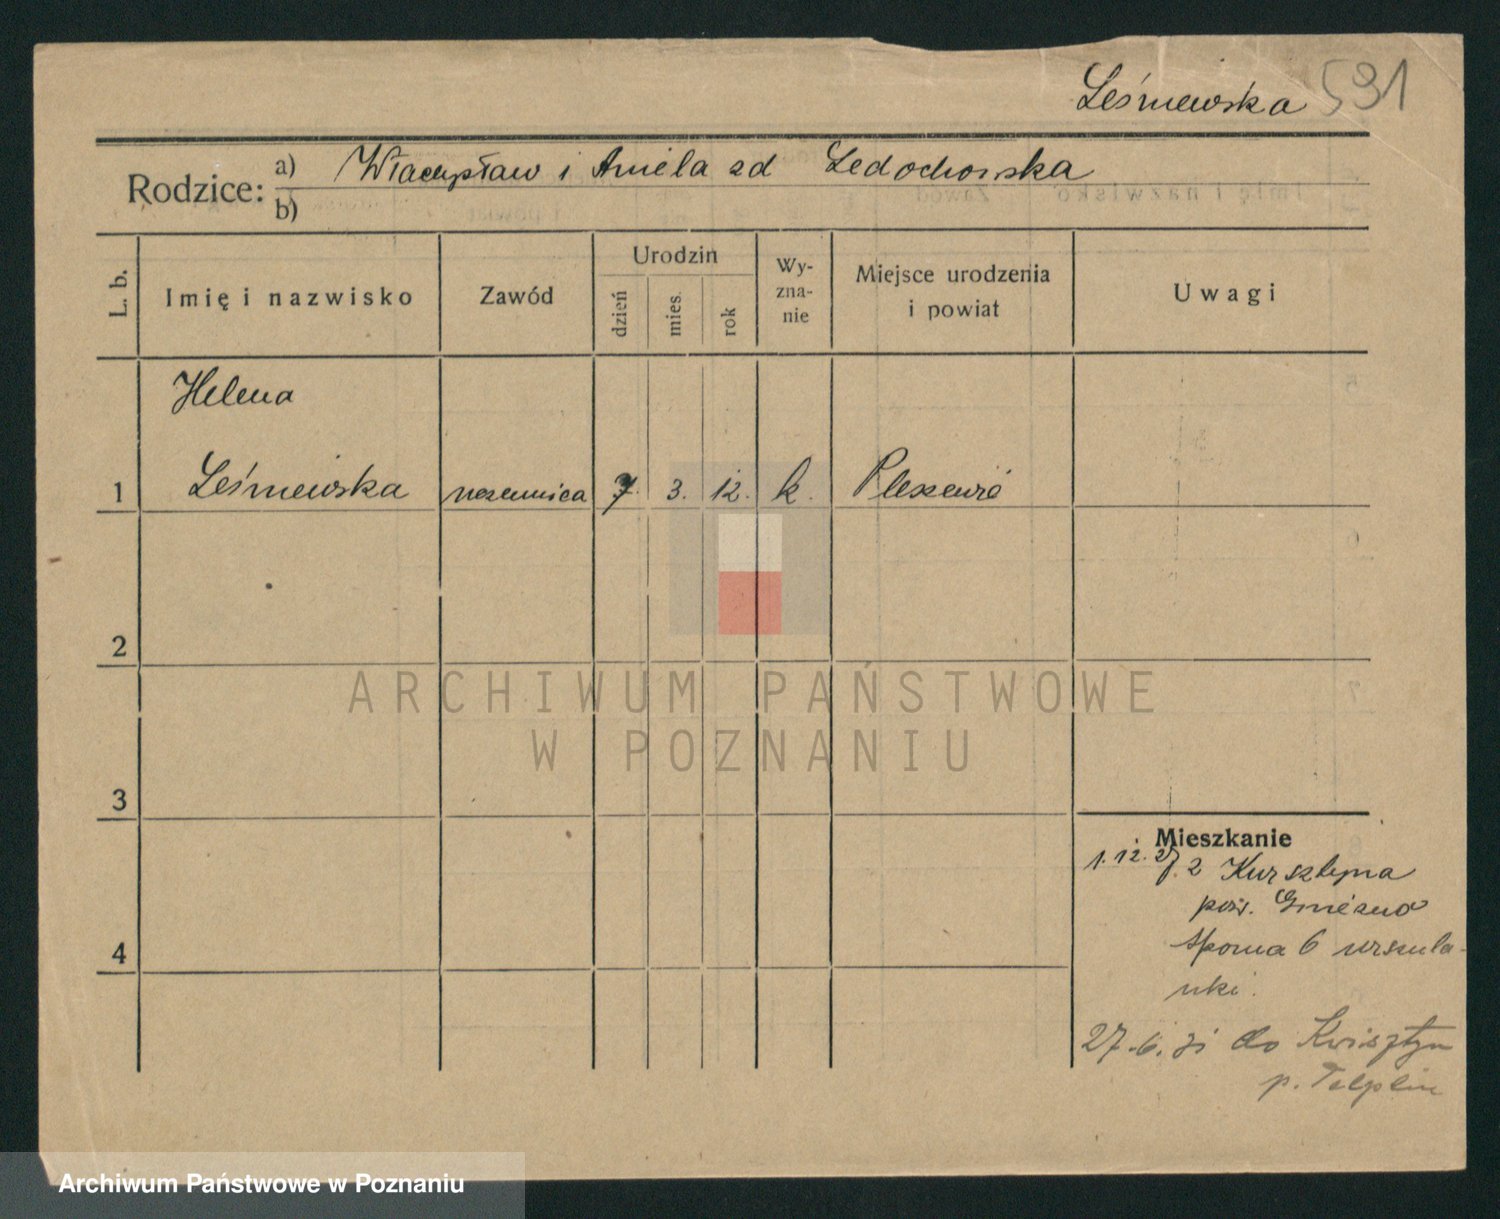 Leśniewska 591
Rodzice: a) Władysław i Aniela zd Ledochowska
b)
L. b.
Imię i nazwisko
Zawód
Urodzin
dzień
mies.
rok
Wy-
zna-
nie
Miejsce urodzenia
i powiat
Uwagi
Helena
1 Leśniewska uczennica 7. 3. 12. k. Pleszewie
2
3
4
ARCHIWUM PAŃSTWOWE
W POZNANIU
Mieszkanie
1.12.27. z
pow. Gniezno
Sporna 6 urszula-
nki.
27.6.31 do
p.
Archiwum Państwowe w Poznaniu